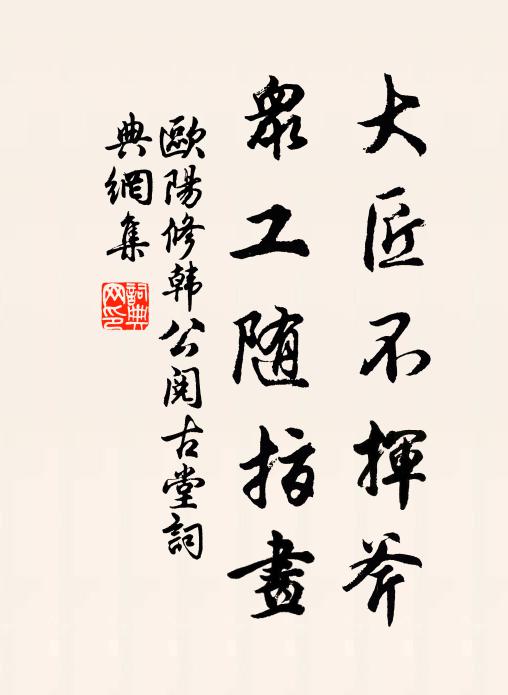 大匠不揮斧
眾工随指畫
歐陽修韩公閱古堂詞
典網集
詞典网印